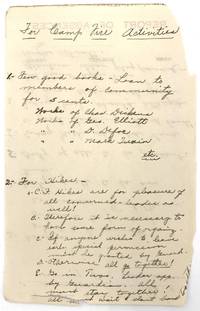 For Camp Fire Activities
1- Few good books - Loan to
members of community
for 5 cents.
Works of Chas Dickens
Works of Geo. Elliott
" " D. Defoe
" " Mark Twain
etc.
2- For Hikes -
a. C.F. Hikes are for pleasure of
all concerned - leader as
well!
b. Therefore it is necessary to
have some form of
C. If anyone wishes to
special permission
must be granted by Guard.
d. Otherwise all go together!
E. Go in Twos.
by Guardian all
must stay together!
all wait & don't send